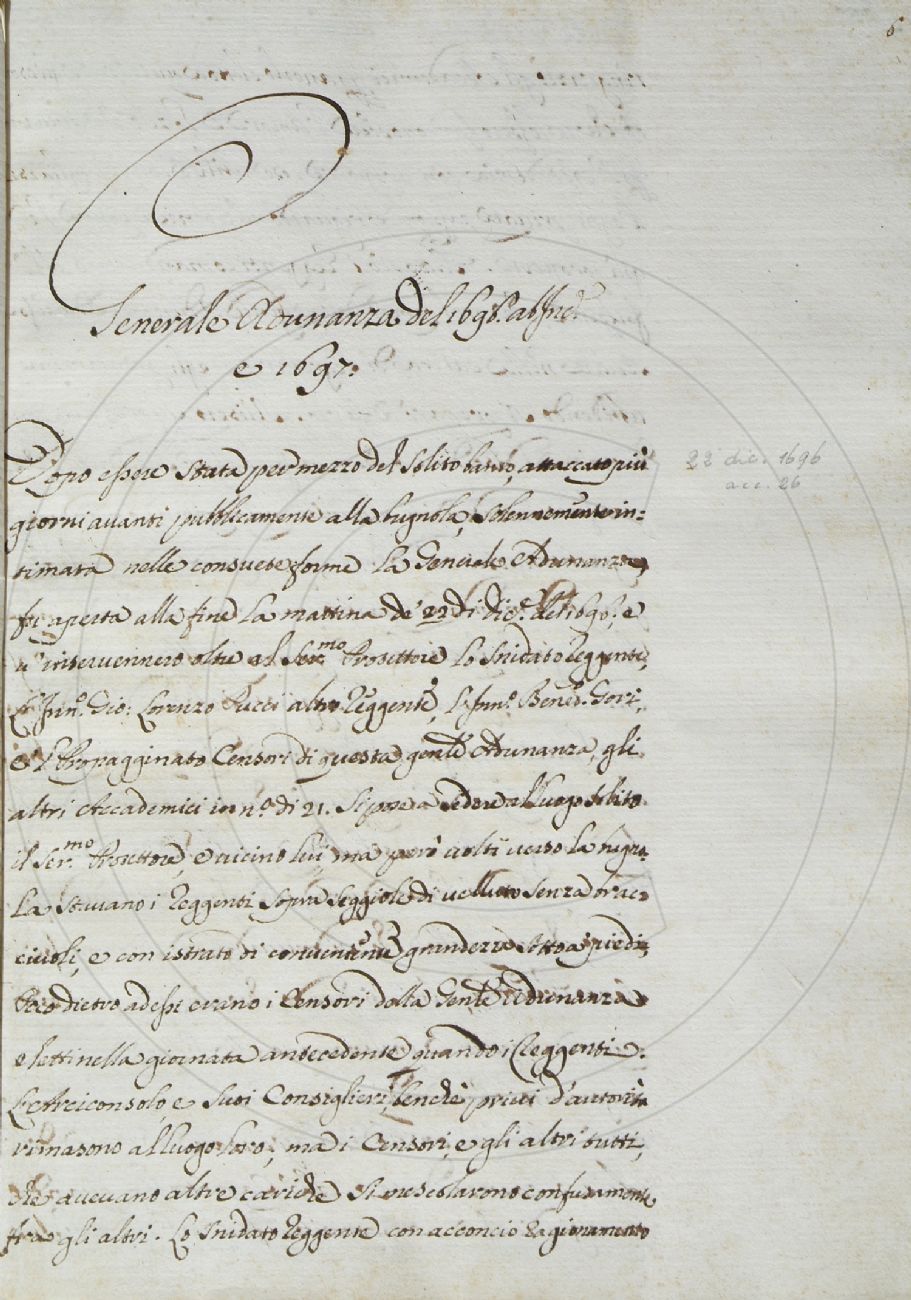 6
Generale Adunanza del 1696. ab Inc.e
e 1697.
Dopo essere stata per mezzo del solito attaccato più
giorni avanti pubblicamente alla bugnola, solennemente in:
timata nelle consuete forme la Generale Adunanza,
fu aperta alla fine la mattina de' 22 di Dic.e del 1696, e
v' intervennero oltre al Ser.mo Protettore lo Snidato Reggente,
L'Inn.o Gio: Lorenzo Pucci altro Reggente, L'Inn.o Bened. Gori,
e l'Propagginato Censori di questa gen.le Adunanza, gli
altri Accademici in n.o di 21. Si pose a sedere al luogo solito
il Ser.mo Protettore, e vicino lui, ma però volti verso la bugno
la stavano i Reggenti sopra seggiole di velluto senza brac:
ciuoli, e con istrato di conveniente grandezza sotto a' piedi,
Poco dietro ad essi erano i Censori della Gen.le Adunanza
eletti nella giornata antecedente quando i Reggenti.
L'Arciconsolo, e suoi Consiglieri, benchè privi d'autorità
rimasono al luogo loro; ma i Censori, e gli altri tutti,
che avevano altre cariche si mescolarono confusamente
fra gli altri. Lo Snidato Reggente con acconcio ragionamento
22 dic. 1696
acc. 26